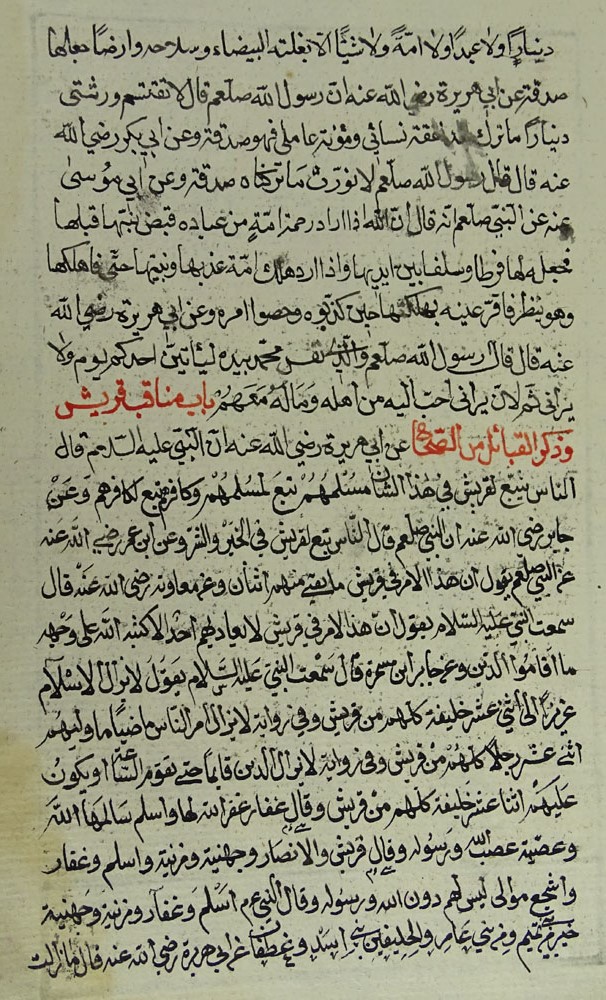 دينارًا ولا عبدًا ولا امةً ولا شيئًا الا بغلته البيضاء وسلاحه وارضًا جعلها
صدقة عن ابي هريرة رضي الله عنه ان رسول الله صلعم قال لا تقتسم ورثتي
دينارًا ما تركت بعد نفقة نسائي ومؤنة عاملي فهو صدقة وعن ابي بكر رضي الله
عنه قال قال رسول الله صلعم لا نورث ما تركناه صدقة وعن ابي موسى
عنه عن النبي صلعم انه قال ان الله اذا اراد رحمة امةٍ من عباده قبض نبيها قبلها
فجعله لها فرطا وسلفا بين ايديها واذا اراد هلاك امة عذبها ونبيها حتى فاهلكها
وهو ينظر فاقر عينه بهلكتها حين كذبوه وعصوا امره وعن ابي هريرة رضي الله
عنه قال قال رسول الله صلعم والذي نفس محمد بيده لياتين احدكم يوم ولا
يراني ثم لان يراني احب اليه من اهله وماله معهم باب مناقب قريش
وذكر القبائل من الصحاح عن ابي هريرة رضي الله عنه ان النبي عليه السلام قال
الناس تبع لقريش في هذا الشان مسلمهم تبع لمسلمهم وكافرهم تبع لكافرهم وعن
جابر رضي الله عنه ان النبي صلعم قال الناس تبع لقريش في الخير والشر وعن ابن عمر رضي الله عنه
عن النبي صلعم يقول ان هذا الامر في قريش ما بقي منهم اثنان وعن معاوية رضي الله عنه قال
سمعت النبي عليه السلام يقول ان هذا الامر في قريش لا يعاديهم احد الا كبه الله على وجهه
ما اقاموا الدين وعن جابر ابن سمرة قال سمعت النبي عليه السلام يقول لا يزال الاسلام
عزيزًا الى اثني عشر خليفة كلهم من قريش وفي رواية لا يزال امر الناس ماضيًا ما وليهم
اثنى عشر رجلًا كلهم من قريش وفي رواية لا يزال الدين قايمًا حتى يقوم الساعة او يكون
عليكم اثنا عشر خليفة كلهم من قريش وقال غفار غفر الله لها واسلم سالمها الله
وعصية عصت الله ورسوله وقال قريش والانصار وجهنية ومزنية واسلم وغفار
واشجع موالي ليس لهم دون الله ورسوله وقال النبي عم اسلم وغفار ومزنية وجهنية
خير من تميم ومن بني عامر والحليفين بني اسد وغطفان عن ابي هريرة رضي الله عنه قال ما زالت